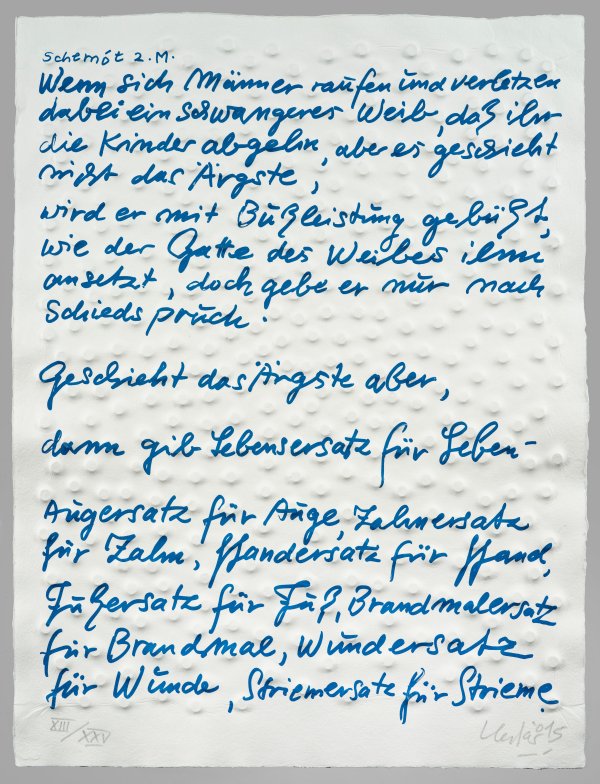 Schemót 2. M.
Wenn sich Männer raufen und verletzen
dabei ein schwangeres Weib, daß ihr
die Kinder abgehn, aber es geschieht
nicht das Ärgste,
wird er mit Bußleistung gebüßt,
wie der Gatte des Weibes ihm
ansetzt, doch gebe er nur nach
Schiedspruch!
Geschieht das Ärgste aber,
dann gib Lebensersatz für Leben-
Augersatz für Auge, Zahnersatz
für Zahn, Handersatz für Hand,
Fußersatz für Fuß, Brandmalersatz
für Brandmal, Wundersatz
für Wunde, Striemersatz für Strieme.
XIII/XXV
015